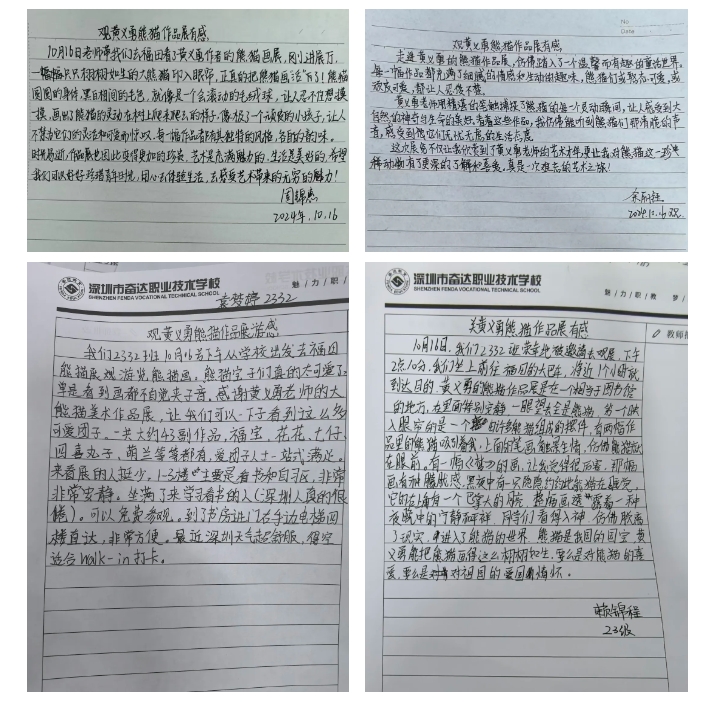 观黄义勇熊猫作品展有感
10月16日老师带我们去福田看了黄义勇作者的熊猫画展，刚进展厅，
一幅幅只只栩栩如生的大熊猫印入眼帘，正真的把熊猫画"活"了！熊猫
圆圆的身体，黑白相间的毛色，就像是一个会滚动的毛绒球，让人忍不住想摸一
摸，画出熊猫的灵动在树上爬来爬去的样子，像极了一个顽皮的小孩子，让人
不禁为它们的灵活和可爱而惊叹，每一幅作品都有其独特的风格，各自的韵味。
时光易逝，作品展也因此变得更加的珍贵，艺术是充满魅力的，生活是美好的，希望
我们可以好好珍惜青年时光，用心去体验生活，去感受艺术带来的无穷的魅力！
周锦惠
2024年.10.16
No
Date
观黄义勇熊猫作品展有感
走进黄义勇的熊猫作品展，仿佛踏入了一个温馨而有趣的童话世界。
每一幅作品都充满了细腻的情感和生动的趣味，熊猫们或憨态可爱，或
顽皮可爱，都让人忍俊不禁。
黄义勇老师用精湛的笔触捕捉了熊猫的每一个灵动瞬间，让人感受到大
自然的神奇与生命的美好。看着这些作品，我仿佛能听到熊猫们那清脆的声
音，感受到他们无忧无虑的生活态度。
这次展览不仅让我欣赏到了黄义勇老师的艺术才华，更让我对熊猫这一珍稀
动物有了更深的了解和喜爱。真是一次难忘的艺术之旅！
2024.10.16.
深圳市奋达职业技术学校
SHENZHEN FENDA VOCATIONAL TECHNICAL SCHOOL
魅/力/职/
袁梦婷 2332
观黄义勇熊猫作品展游感
我们2332班10月16号下午从学校出发去福田
熊猫展观游览熊猫画，熊猫宝子们真的太可爱了
单是看到画都不自觉夹子音，感谢黄义勇老师的大
熊猫美术作品展，让我们可以一下子看到这么多
可爱团子。一共大约43副作品，福宝、花花、七仔、
四喜丸子、萌兰等等都有，爱团子人士一站式满足。
来看展的人挺少，1-3楼主要是看书和自习区，非常
非常安静。坐满了来学习看书的人（深圳人真的很
卷）。可以免费参观。到了书房进门右手边电梯四
楼直达，非常方便。最近深圳天气超舒服，得空
适合walk-in打卡。
深圳市奋达职业技术学校
SHENZHEN FENDA VOCATIONAL TECHNICAL SCHOOL
魅/力/职/教 梦/
教师
关黄义勇熊猫作品展有感
10月16日，我们2332班荣幸地被邀请去观展，下午
2点10分，我们坐上前往福田的大巴车，将近1个小时就
到达目的，黄义勇的熊猫作品展是在一个相当于图书馆
的地方，在里面特别安静，一眼望去全是熊猫，第一个映
入眼帘的是一个由许多熊猫组成的摆件，有两幅作
品里的熊猫吸引着我，上面的笔画有触景生情，仿佛熊猫就
在眼前，有一幅《梦》的画，让我觉得很厉害，那幅
画有种朦胧感，黑夜中有一只隐隐约约的熊猫在睡觉，
它的左上角有一个巴掌大的月亮，整幅画透露着一种
夜晚中的宁静和祥，同学们看得入神，仿佛脱离
了现实，来进入了熊猫的世界，熊猫是我国的国宝，黄
义勇能把熊猫画得这么栩栩如生，要么是对熊猫的喜
爱，要么是对祖国的爱国情怀。
赖锦程
23级